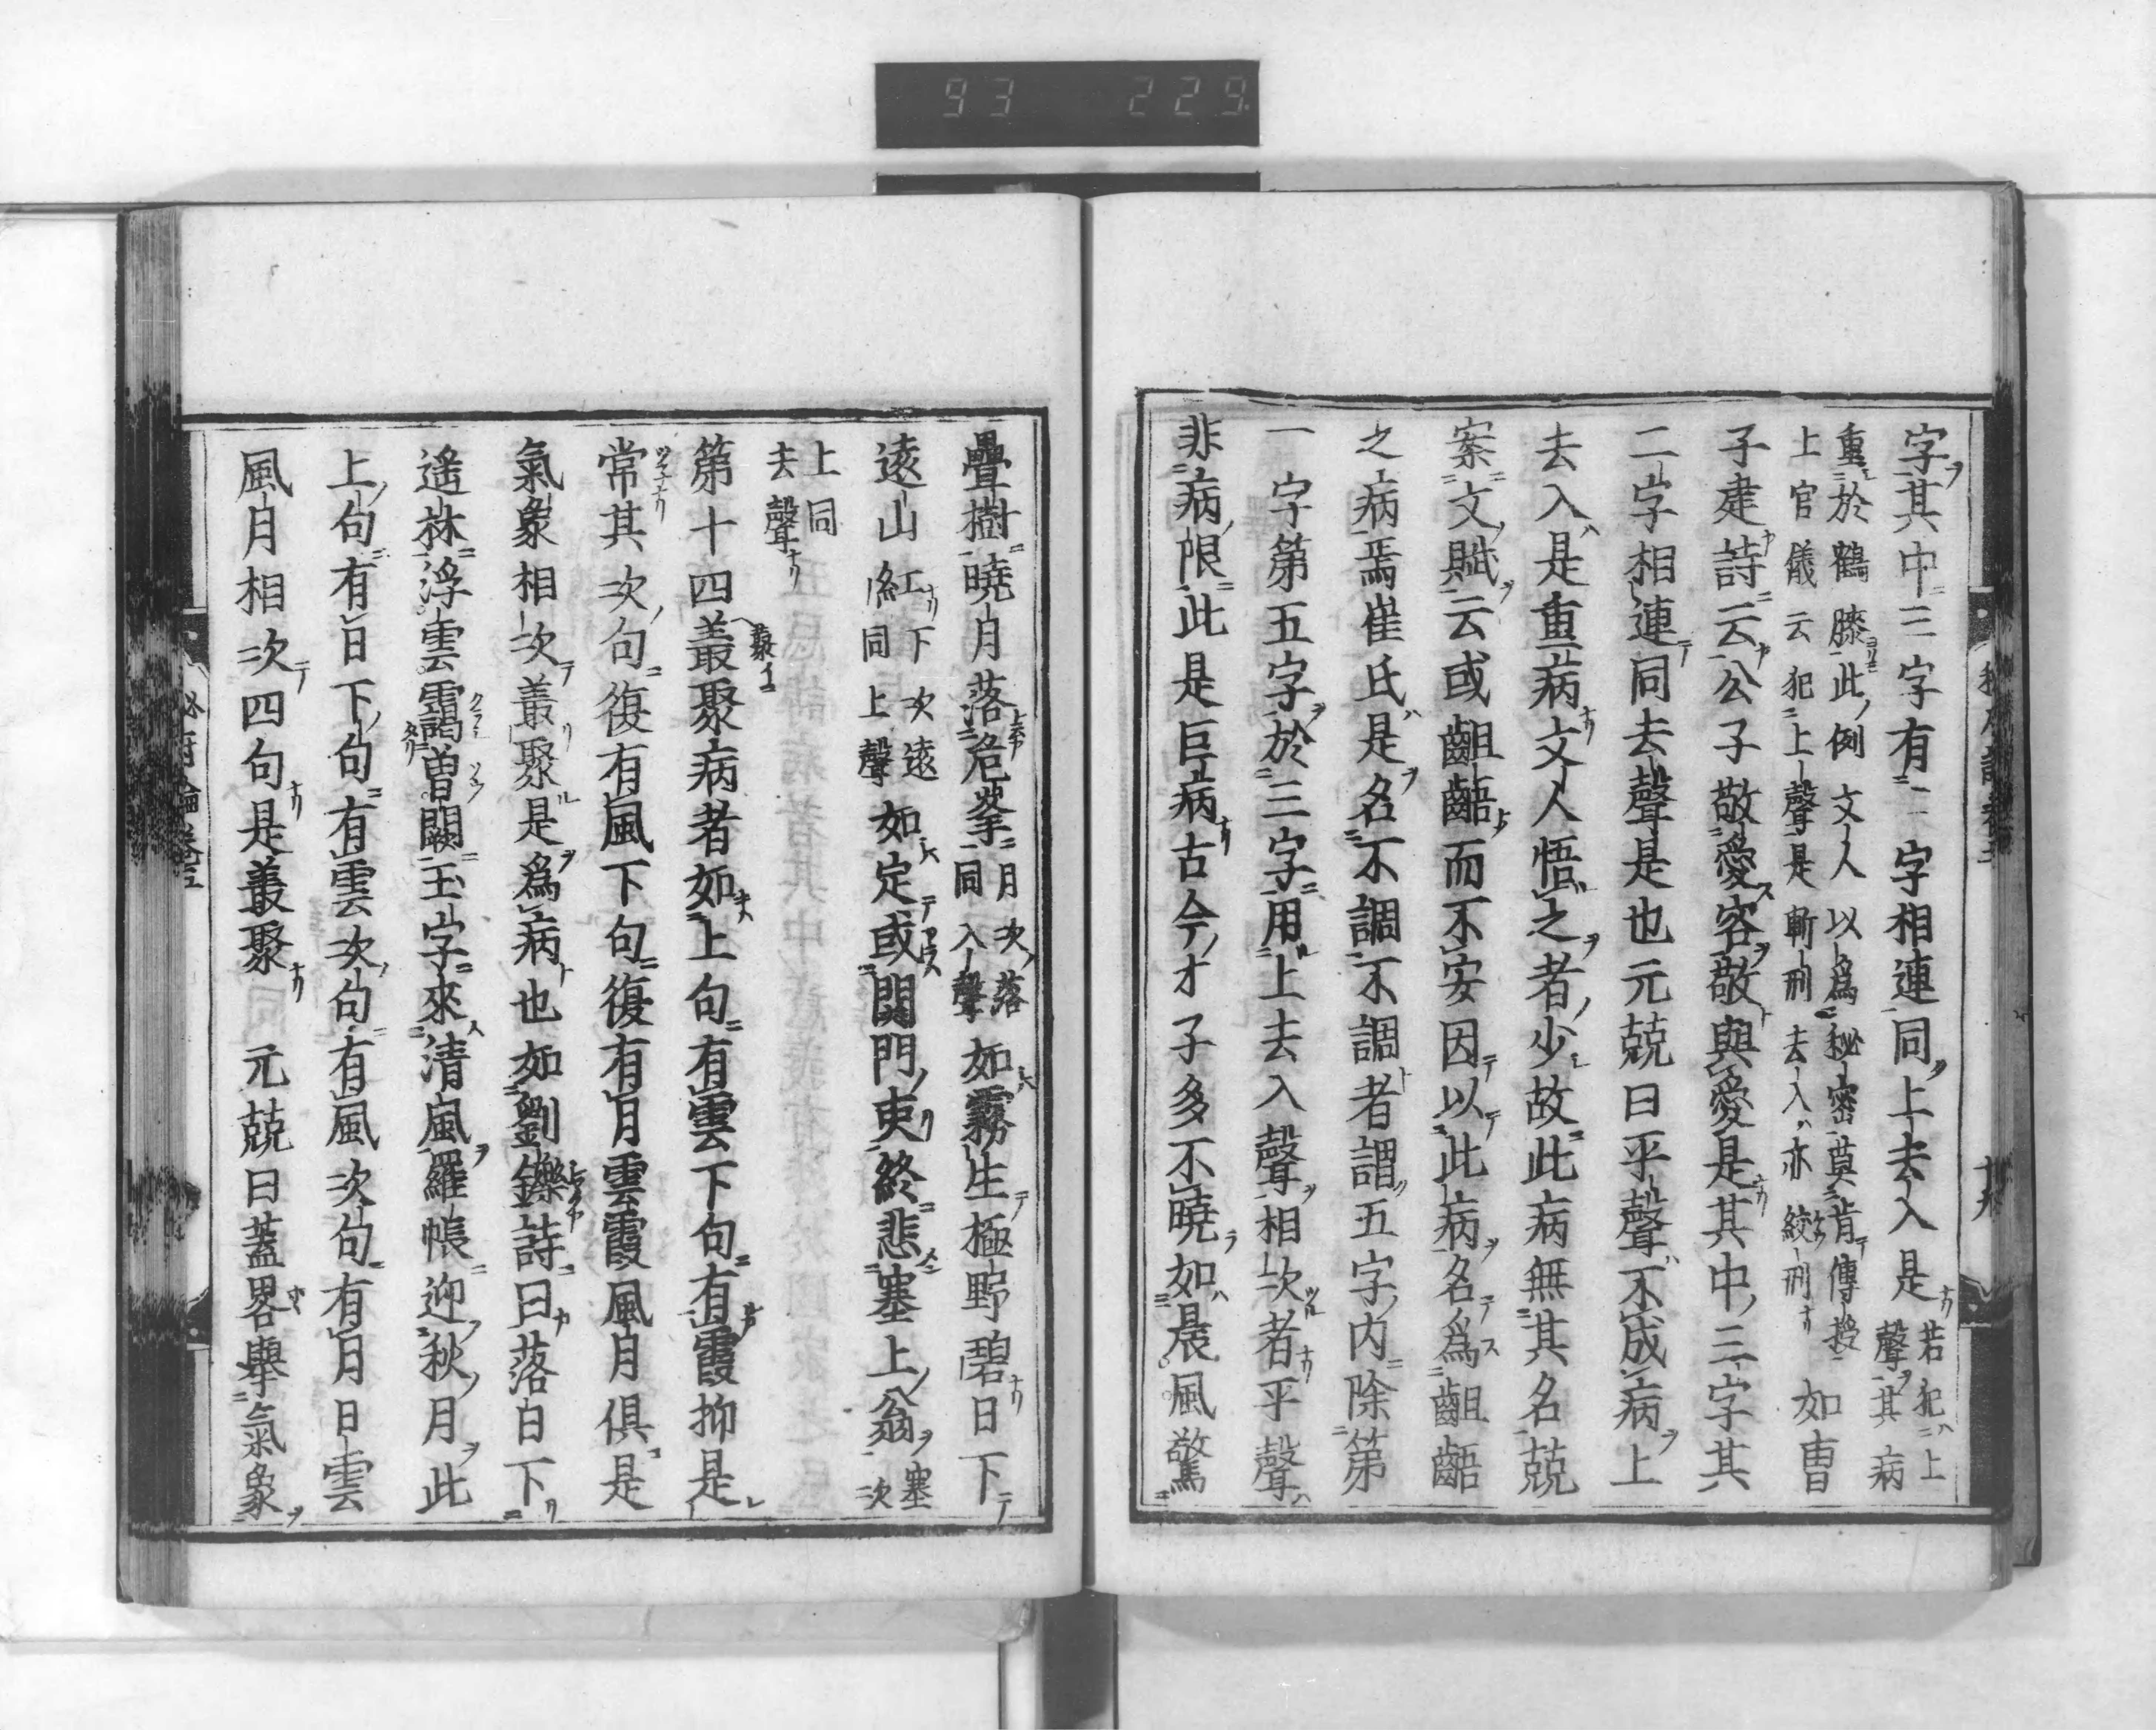 93 229
字其中三字有二字相連同上去入是若犯上聲其病
重於鶴膝此例文人以爲秘密莫肯傳授
上官儀云犯上聲是斬刑去入亦絞刑
如曺
子建詩云公子敬愛容敬與愛是其中三字其
二字相連同去聲是也元兢曰平聲不成病上
去入是重病文人悟之者少故此病無其名兢
案文賦云或齟齬而不安因以此病名爲齟齬
之病焉崔氏是名不調不調者謂五字內除第
一字第五字於三字用上去入聲相次者平聲
非病限此是巨病古今才子多不曉如晨風驚
疊樹曉月落危峯月次落同入聲如霧生極野碧日下
遠山紅下次遠同上聲如定或開門吏終悲塞上翁塞次
上同去聲
第十四叢聚病者如上句有雲下句有霞抑是
常其次句復有風下句復有月雲霞風月俱是
氣象相次叢聚是爲病也如劉鑠詩曰落日下
遙林浮雲靄曽闕玉宇來清風羅帳迎秋月此
上句有日下句有雲次句有風次句有月日雲
風月相次四句是叢聚 元兢曰蓋畧舉氣象